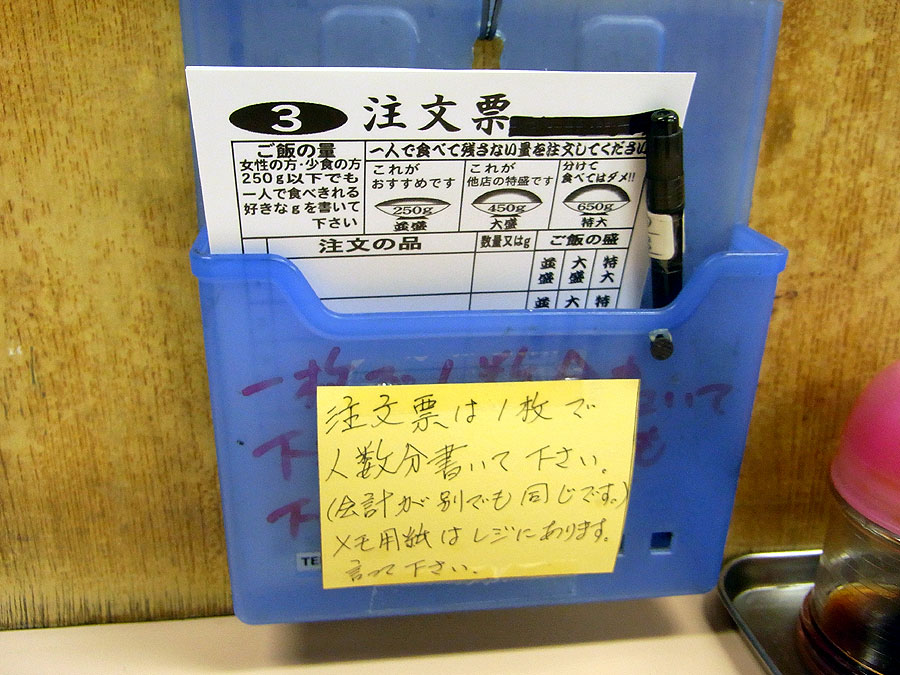 3 注文票
ご飯の量
女性の方・少食の方
250g以下でも
一人で食べきれる
好きなgを書いて
下さい
一人で食べて残さない量を注文してください
これが
おすすめです
250g
並盛
これが
他店の特盛です
450g
大盛
分けて
食べてはダメ!!
650g
特大
注文の品 数量又はg ご飯の盛
並盛 大盛 特大
並 大 特
一枚で人数分 書いて
下
下
注文票は1枚で
人数分書いて下さい。
(会計が別でも同じです。)
メモ用紙はレジにあります。
言って下さい。
TE